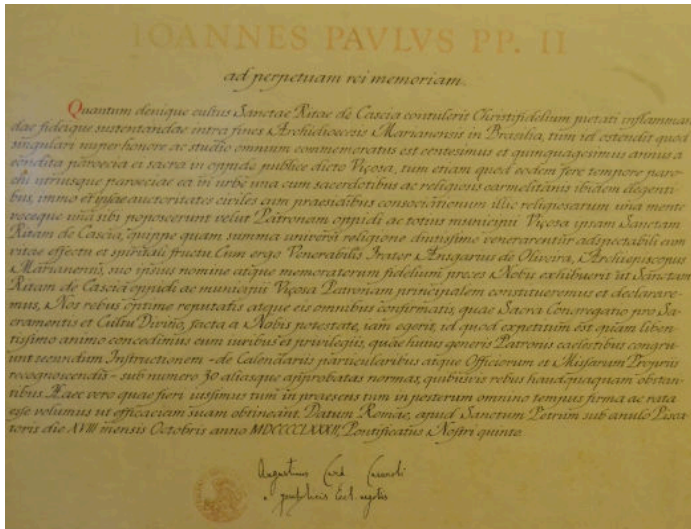 IOANNES PAVLVS PP. II
ad perpetuam rei memoriam.
Quantum denique cultus Sanctae Ritae de Cascia contulerit Christifidelium pietati inflamman
dae fideique sustentandae intra fines Archidioecesis Marianensis in Brasilia, tum id ostendit quod
singulari nuper honore ac studio omnium commemoratus est centesimus et quinquagesimus annus a
condita paroecia ei sacra in oppido publice dicto Viçosa, tum etiam quod eodem fere tempore paro
chi utriusque paroeciae ea in urbe una cum sacerdotibus ac religiosis carmelitanis ibidem degenti
bus, immo et ipsae auctoritates civiles cum praesidibus consociationum illic religiosarum una mente
voceque una sibi poposcerunt velut Patronam oppidi ac totius municipii Viçosa ipsam Sanctam
Ritam de Cascia, quippe quam summa universi religione diutissimo venerarentur adspectabili cum
vitae effectu et spiritali fructu. Cum ergo Venerabilis Frater Ansgarius de Oliveira, Archiepiscopus
Marianensis, suo ipsius nomine atque memoratorum fidelium preces Nobis exhibuerit ut Sanctam
Ritam de Cascia oppidi ac municipii Viçosa Patronam principalem constitueremus et declarare
mus, Nos rebus optime reputatis atque eis omnibus confirmatis, quae Sacra Congregatio pro Sa
cramentis et Cultu Divino, facta a Nobis potestate, iam egerit, id quod expetitum est quam liben
tissimo animo concedimus cum iuribus et privilegiis, quae huius generis Patronis caelestibus congru
unt secundum Instructionem - de Calendariis particularibus atque Officiorum et Missarum Propriis
recognoscendis - sub numero 30 aliasque approbatas normas, quibusvis rebus haudquaquam obstan
tibus. Haec vero quae fieri iussimus tum in praesens tum in posterum omnino tempus firma ac rata
esse volumus ut efficaciam suam obtineant. Datum Romae, apud Sanctum Petrum sub anulo Pisca
toris die XVIII mensis Octobris anno MDCCCCLXXXII, Pontificatus Nostri quinto.
Augustinus Card Casaroli
a publicis Eccl. negotiis